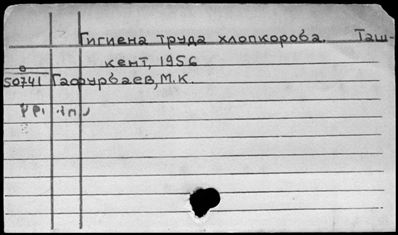 Гигиена труда хлопкороба. Таш-
кент, 1956
50741 Гафурбаев, М.К.